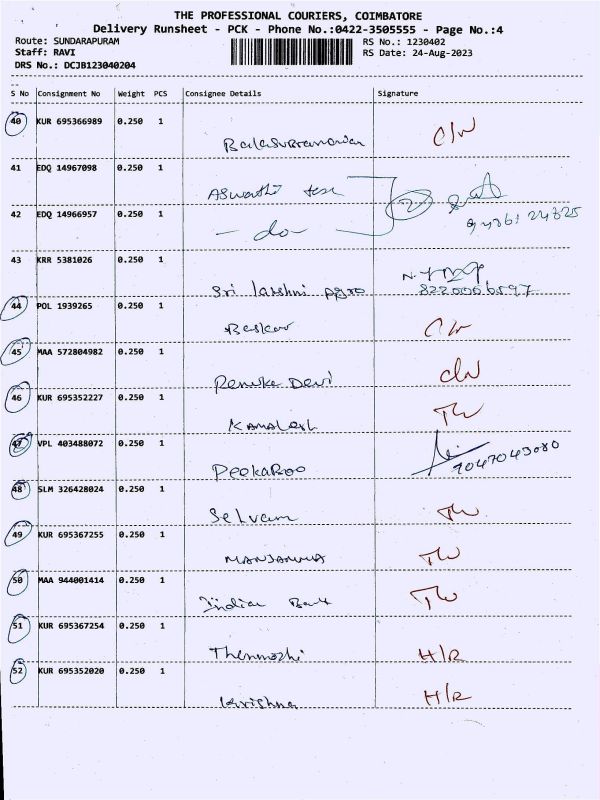 THE PROFESSIONAL COURIERS, COIMBATORE
Delivery Runsheet - PCK - Phone No.:0422-3505555 - Page No.:4
Route: SUNDARAPURAM RS No.: 1230402
Staff: RAVI RS Date: 24-Aug-2023
DRS No.: DCJB123040204
S No Consignment No Weight PCS Consignee Details Signature
40 KUR 695366989 0.250 1
Balasubramanian
41 EDQ 14967098 0.250 1
Aswathi tex
42 EDQ 14966957 0.250 1
- do - 2
43 KRR 5381026 0.250 1
Sri lakshmi Agro 8220006597
44 POL 1939265 0.250 1
Baskar
45 MAA 572804982 0.250 1
Renuka Devi
46 KUR 695352227 0.250 1
Kamalesh
47 VPL 403488072 0.250 1
Peekaboo 7047043080
48 SLM 326428024 0.250 1
Selvam
49 KUR 695367255 0.250 1
50 MAA 944001414 0.250 1
Indian Bank
51 KUR 695367254 0.250 1
Thenmozhi H/R
52 KUR 695352020 0.250 1
Krishna H/R